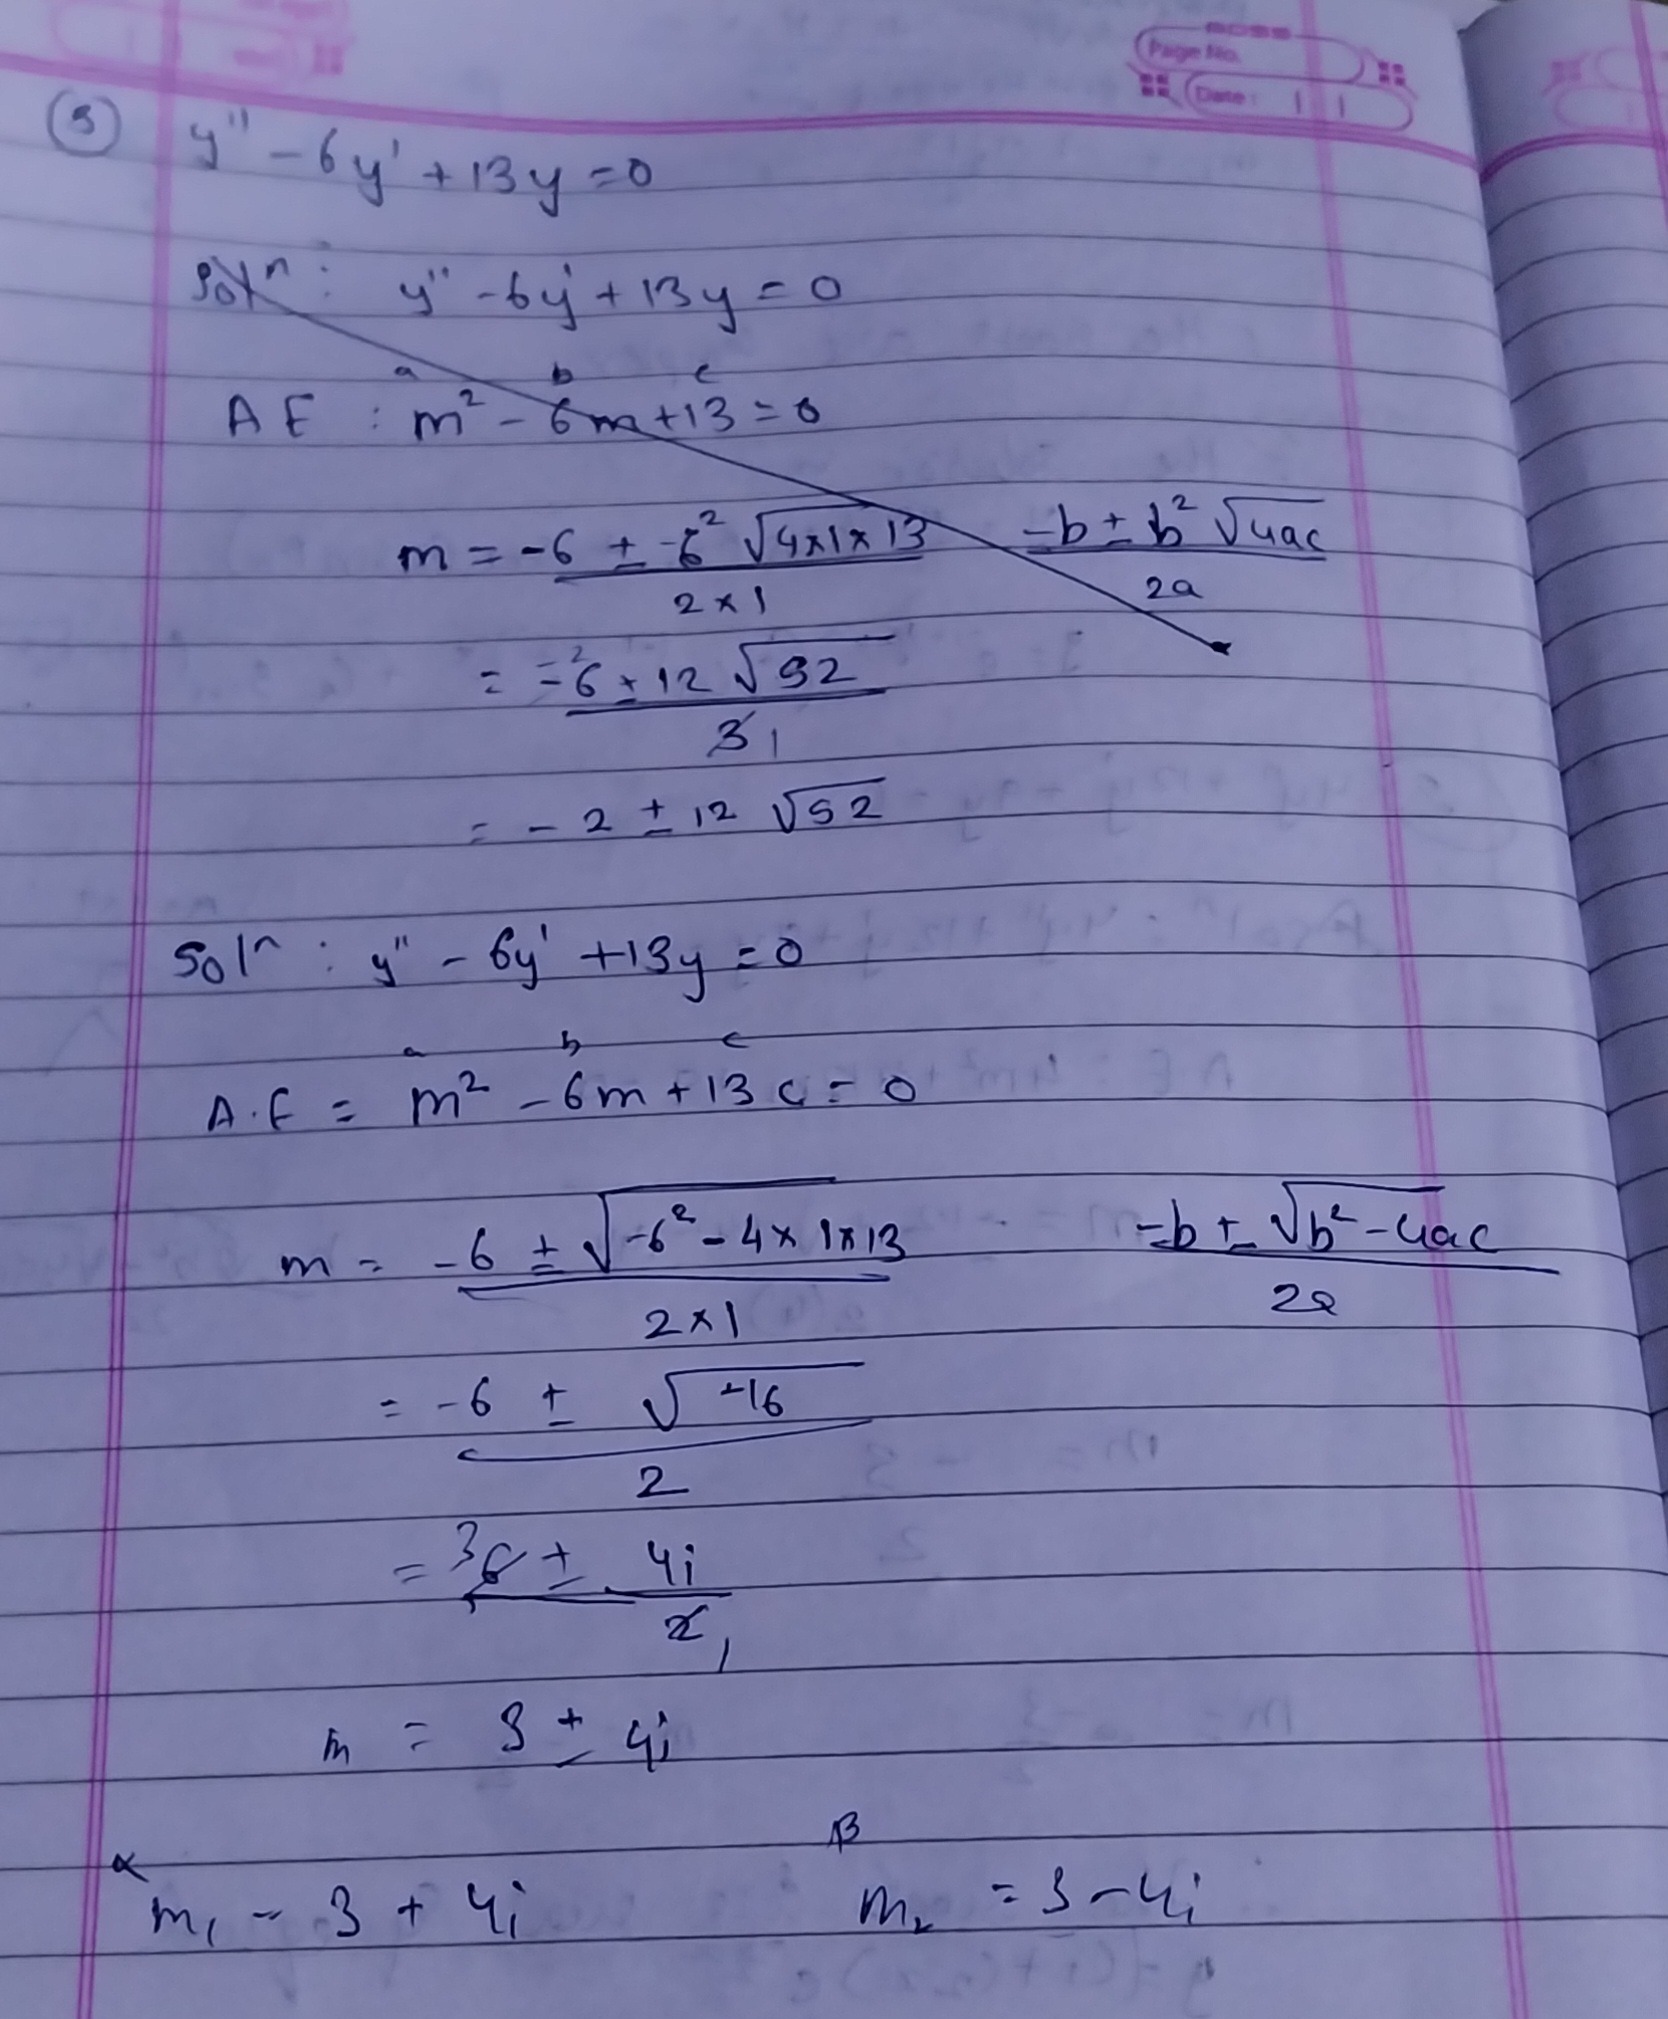 Page No.
Date: | |
(3) y'' - 6y' + 13y = 0
Solⁿ : y'' - 6y' + 13y = 0
a b c
A E : m² - 6m + 13 = 0
m = -6 ± -6² √4×1×13 / 2×1    -b ± b² √4ac / 2a
= -6² ± 12 √52 / 3 1
= - 2 ± 12 √52
Solⁿ : y'' - 6y' + 13y = 0
a b c
A.E = m² - 6m + 13 c = 0
m = -6 ± √-6² - 4×1×13 / 2×1    -b ± √b² - 4ac / 2a
= -6 ± √-16 / 2
= 3 6 ± 4i / 2 1
m = 3 ± 4i
α β
m₁ - 3 + 4i    m₂ = 3 - 4i